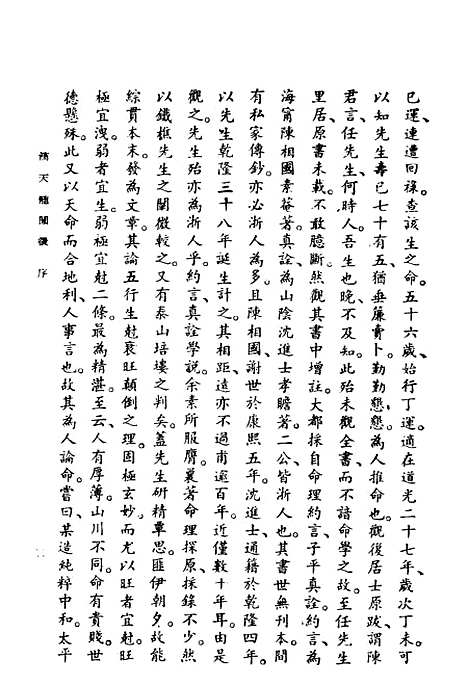 已運、連遭回祿。查該生之命。五十六歲、始行丁運。適在道光二十七年、歲次丁未。可
以知先生壽已七十有五、猶垂簾賣卜。勤勤懇懇。為人推命也。觀後居士原跋、謂陳
君言、任先生、何時人。吾生也晚、不及知。此殆未觀全書、而不諳命學之故。至任先生
里居、原書未載。不敢臆斷。然觀其書中增註、大都採自命理約言、子平真詮。約言、為
海甯陳相國素菴著。真詮、為山陰沈進士孝瞻著。二公皆浙人也。其書世無刊本。間
有私家傳鈔。亦必浙人為多。且陳相國、謝世於康熙五年。沈進士、通籍於乾隆四年。
以先生乾隆三十八年誕生計之。其相距、遠亦不過甫逾百年。近僅數十年耳。由是
觀之。先生殆亦為浙人乎。約言、真詮學說。余素所服膺。曩著命理探原、採錄不少。然
以鐵樵先生之闡微較之。又有泰山培塿之判矣。蓋先生研精覃思。匪伊朝夕。故能
綜貫本末。發為文章。其論五行生尅衰旺顛倒之理。固極玄妙。而尤以旺者宜尅。旺
極宜洩。弱者宜生。弱極宜尅二條。最為精湛。至云、人有厚薄。山川不同。命有貴賤。世
德懸殊。此又以天命而合地利、人事言也。故其為人論命。嘗曰、某造純粹中和。太平
滴天髓闡微 序